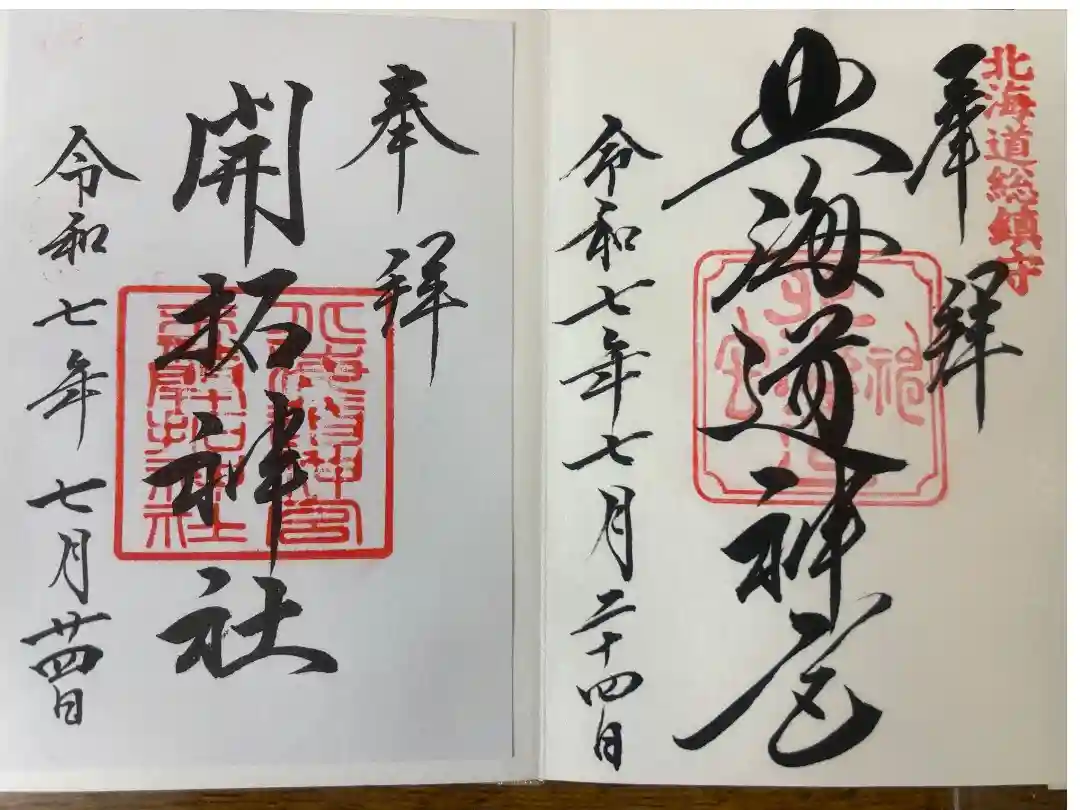 北海道総鎮守
奉拝
北海道神宮
令和七年七月二十四日
奉拝
開拓神社
令和七年七月廿四日
北海道神宮
末社開拓神社